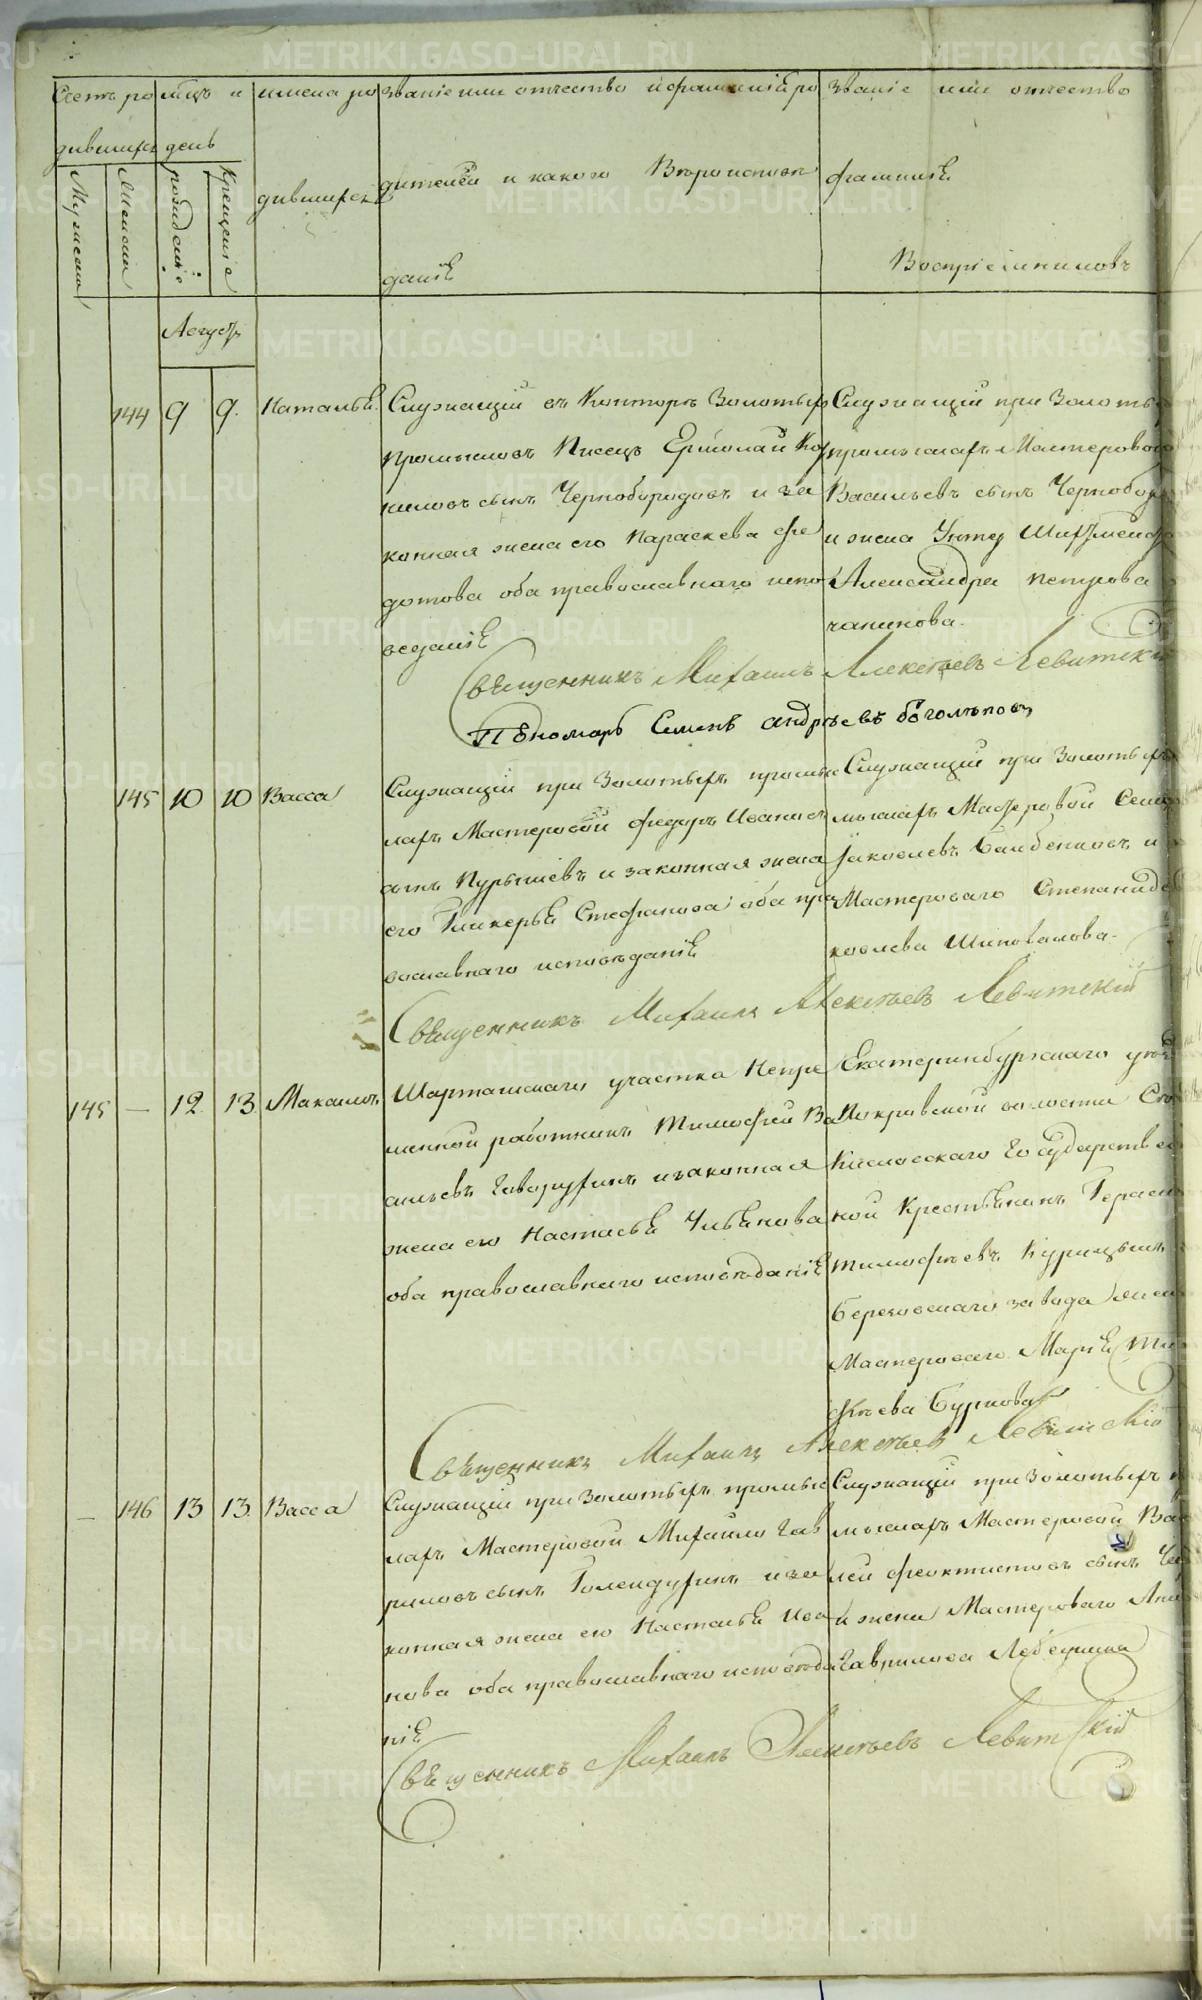 Счетъ ро
дившихся
Мужеска
Женска
мцъ и
день
рождения
Крещения
имена ро
дившихся
звание или отчество и фамилии ро
дителей и какого Вероиспове
даниѣ
Звание или отчество
фамилиѣ
Восприемниковъ
Августъ
144 9 9. Наталья.
Служащий въ Конторѣ Золотыхъ
Промысловъ Писецъ Ермолай Кор
ниловъ сынъ Чернобородовъ и за
конная жена его Параскева Фе
дотова оба православнаго испо
ведания
Служащий при Золоты
промыслахъ Мастероваго
Васильевъ сынъ Чернобор
и жена Унтер Шихтмейсте
Александра Петрова
чапинова.
Священникъ Михаилъ Алексѣевъ Левитский
Пономарь Семенъ Андрѣевъ боголѣповъ
145 10 10 Васса
Служащий при Золотыхъ промыс
лахъ Мастеровой Федоръ Ивановъ
сынъ Пурышевъ и законная жена
его Гликерья Стефанова оба пра
вославнаго исповѣданиѣ
Служащий при Золотыхъ
мыслахъ Мастеровой Семе
Яковлевъ и
Мастероваго Степанида
ковлева Шиповалова.
Священникъ Михаилъ Алексѣевъ Левитский
145 — 12. 13 Макаилъ
Шарташскаго участка Непре
менной работникъ Тимофей Ва
сильевъ Говорухинъ и законная
жена его Настасья
оба православнаго исповѣданиѣ
Екатеринбургскаго уѣз
Покровской волости Се
Кисловскаго Государствен
ной Крестьянинъ Герасим
тимофѣевъ Курицынъ
березовскаго завода жена
Мастероваго Марья Тим
фѣева Буркова
Священникъ Михаилъ Алексѣевъ Левитский
— 146 13 13. Васса
Служащий при Золотыхъ промыс
лахъ Мастеровой Михайло Гав
риловъ сынъ Голендухинъ и за
конная жена его Наталья Ива
нова оба православнаго исповѣда
ниѣ
Служащий при Золотыхъ п
мыслахъ Мастеровой Васи
лей Феоктистовъ сынъ Че
и жена Мастероваго Анн
Гаврилова
Священникъ Михаилъ Алексѣевъ Левитский
METRIKI.GASO-URAL.RU